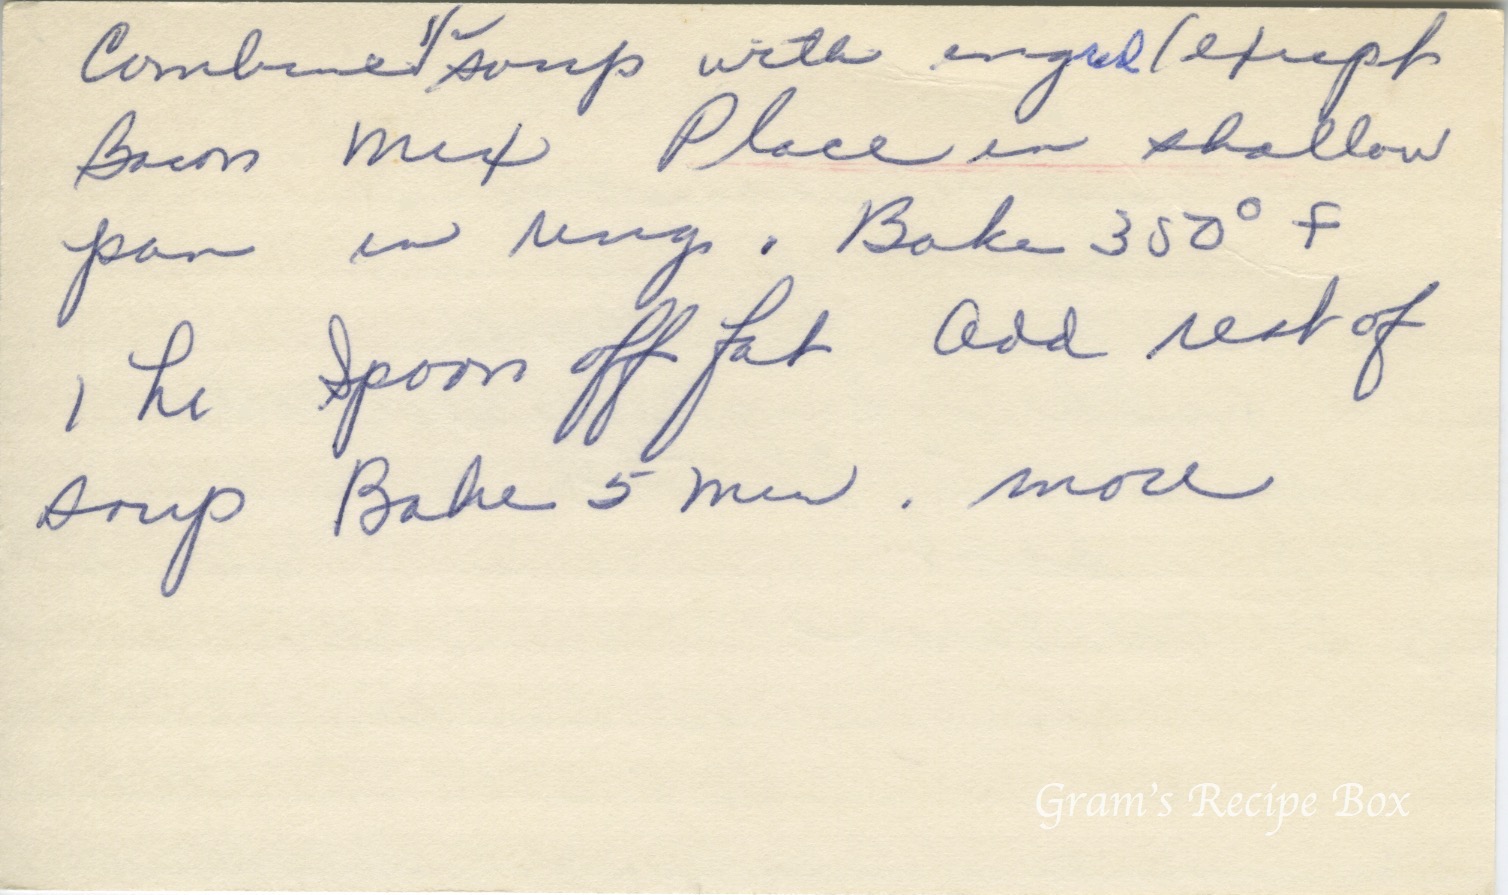 Combine 1/2 soup with ingred (except
Bacon Mix Place in shallow
pan in ring. Bake 350° F
1 hr Spoon off fat Add rest of
soup Bake 5 min. more
Gram's Recipe Box